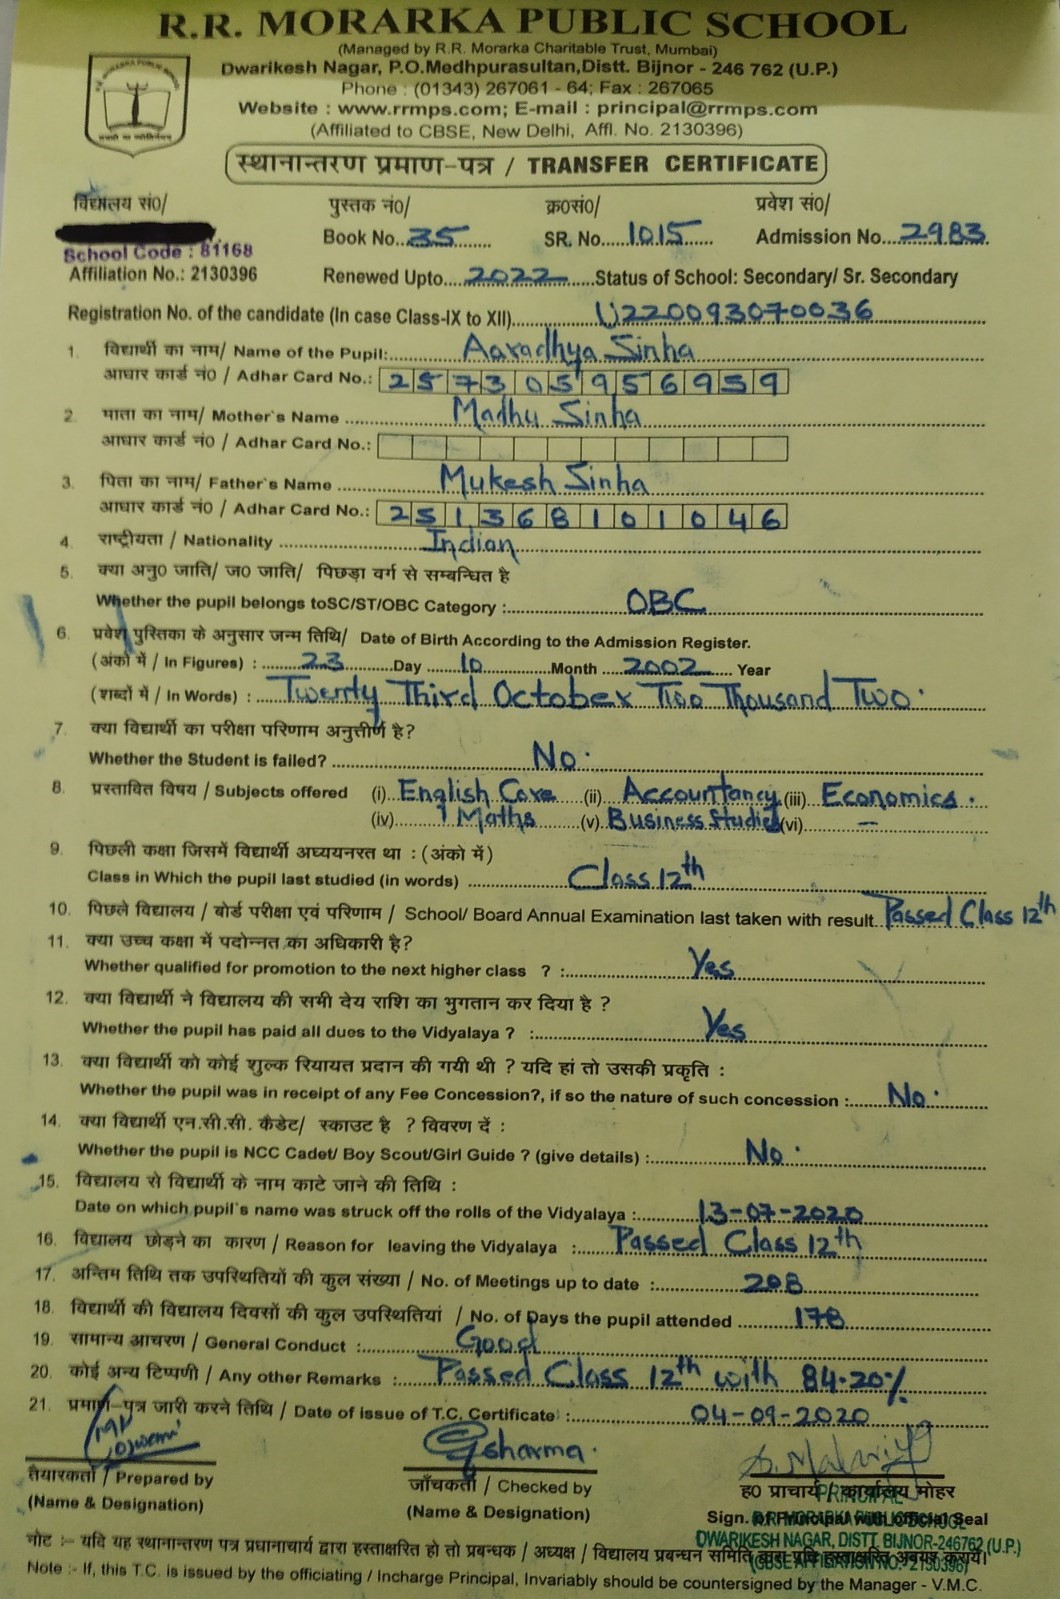 R.R. MORARKA PUBLIC SCHOOL
(Managed by R.R. Morarka Charitable Trust, Mumbai)
Dwarikesh Nagar, P.O.Medhpurasultan,Distt. Bijnor - 246 762 (U.P.)
Phone : (01343) 267061 - 64; Fax : 267065
Website : www.rrmps.com; E-mail : principal@rrmps.com
(Affiliated to CBSE, New Delhi, Affl. No. 2130396)
स्थानान्तरण प्रमाण-पत्र / TRANSFER CERTIFICATE
विद्यालय सं0/ पुस्तक नं0/ क्र0सं0/ प्रवेश सं0/
Book No. 35 SR. No. 1015 Admission No. 2983
School Code : 81168
Affiliation No.: 2130396 Renewed Upto 2022 Status of School: Secondary/ Sr. Secondary
Registration No. of the candidate (In case Class-IX to XII) U220093070036
1. विद्यार्थी का नाम/ Name of the Pupil: Aaradhya Sinha
आधार कार्ड नं0 / Adhar Card No.: 257305956959
2. माता का नाम/ Mother`s Name Madhu Sinha
आधार कार्ड नं0 / Adhar Card No.:
3. पिता का नाम/ Father`s Name Mukesh Sinha
आधार कार्ड नं0 / Adhar Card No.: 251368101046
4. राष्ट्रीयता / Nationality Indian
5. क्या अनु0 जाति/ ज0 जाति/ पिछड़ा वर्ग से सम्बन्धित है
Whether the pupil belongs toSC/ST/OBC Category : OBC
6. प्रवेश पुस्तिका के अनुसार जन्म तिथि/ Date of Birth According to the Admission Register.
(अंको में / In Figures) : 23 Day 10 Month 2002 Year
(शब्दों में / In Words) : Twenty Third October Two Thousand Two.
7. क्या विद्यार्थी का परीक्षा परिणाम अनुत्तीर्ण है?
Whether the Student is failed? No.
8. प्रस्तावित विषय / Subjects offered (i) English Core (ii) Accountancy (iii) Economics.
(iv) Maths (v) Business Studies (vi) —
9. पिछली कक्षा जिसमें विद्यार्थी अध्ययनरत था : (अंको में)
Class in Which the pupil last studied (in words) Class 12th
10. पिछले विद्यालय / बोर्ड परीक्षा एवं परिणाम / School/ Board Annual Examination last taken with result Passed Class 12th
11. क्या उच्च कक्षा में पदोन्नत का अधिकारी है?
Whether qualified for promotion to the next higher class ? : Yes
12. क्या विद्यार्थी ने विद्यालय की सभी देय राशि का भुगतान कर दिया है ?
Whether the pupil has paid all dues to the Vidyalaya ? : Yes
13. क्या विद्यार्थी को कोई शुल्क रियायत प्रदान की गयी थी ? यदि हां तो उसकी प्रकृति :
Whether the pupil was in receipt of any Fee Concession?, if so the nature of such concession : No.
14. क्या विद्यार्थी एन.सी.सी. कैडेट/ स्काउट है ? विवरण दें :
Whether the pupil is NCC Cadet/ Boy Scout/Girl Guide ? (give details) : No.
15. विद्यालय से विद्यार्थी के नाम काटे जाने की तिथि :
Date on which pupil`s name was struck off the rolls of the Vidyalaya : 13-07-2020
16. विद्यालय छोड़ने का कारण / Reason for leaving the Vidyalaya : Passed Class 12th
17. अन्तिम तिथि तक उपस्थितियों की कुल संख्या / No. of Meetings up to date : 208
18. विद्यार्थी की विद्यालय दिवसों की कुल उपस्थितियां / No. of Days the pupil attended 178
19. सामान्य आचरण / General Conduct : Good
20. कोई अन्य टिप्पणी / Any other Remarks : Passed Class 12th with 84.20%
21. प्रमाण-पत्र जारी करने तिथि / Date of issue of T.C. Certificate : 04-09-2020
Sharma.
तैयारकर्ता / Prepared by जाँचकर्ता / Checked by ह0 प्राचार्य / कार्यालय मोहर
(Name & Designation) (Name & Designation) Sign. of Principal with Official Seal
PRINCIPAL
R.R. MORARKA PUBLIC SCHOOL
DWARIKESH NAGAR, DISTT. BIJNOR-246762 (U.P.)
(CBSE AFFILIATION NO.-2130396)
नोट :- यदि यह स्थानान्तरण पत्र प्रधानाचार्य द्वारा हस्ताक्षरित हो तो प्रबन्धक / अध्यक्ष / विद्यालय प्रबन्धन समिति द्वारा प्रति हस्ताक्षरित अवश्य करायें।
Note :- If, this T.C. is issued by the officiating / Incharge Principal, Invariably should be countersigned by the Manager - V.M.C.